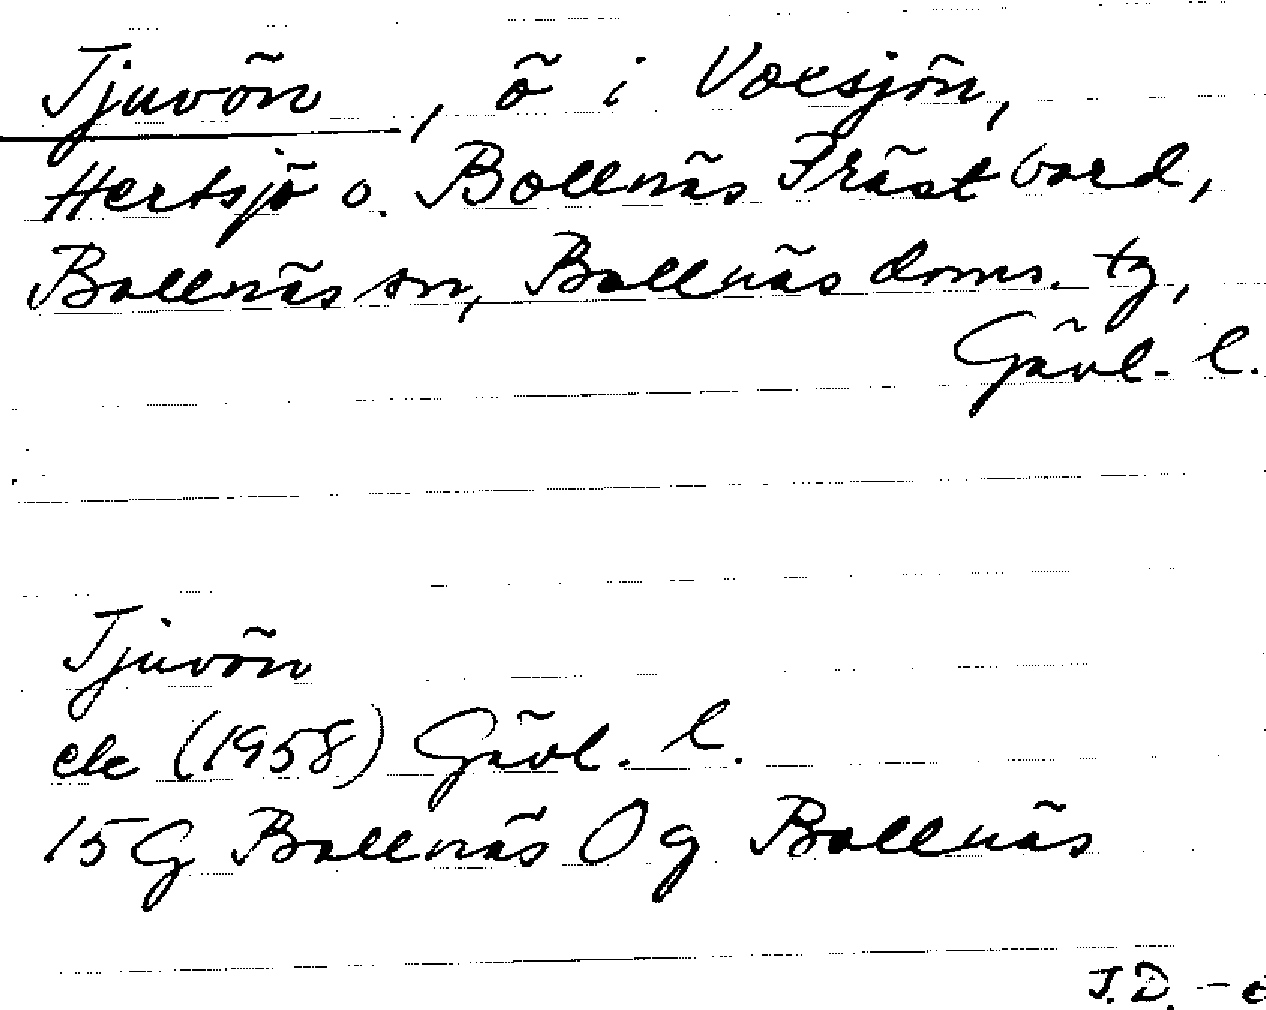 Tjuvön, ö i Voxsjön,
Hertsjö o. Bollnäs Prästbord,
Bollnäs sn, Bollnäs doms. tg,
Gävl. l.
Tjuvön
ek (1958) Gävl. l.
15G Bollnäs 0g Bollnäs
J.D. -6